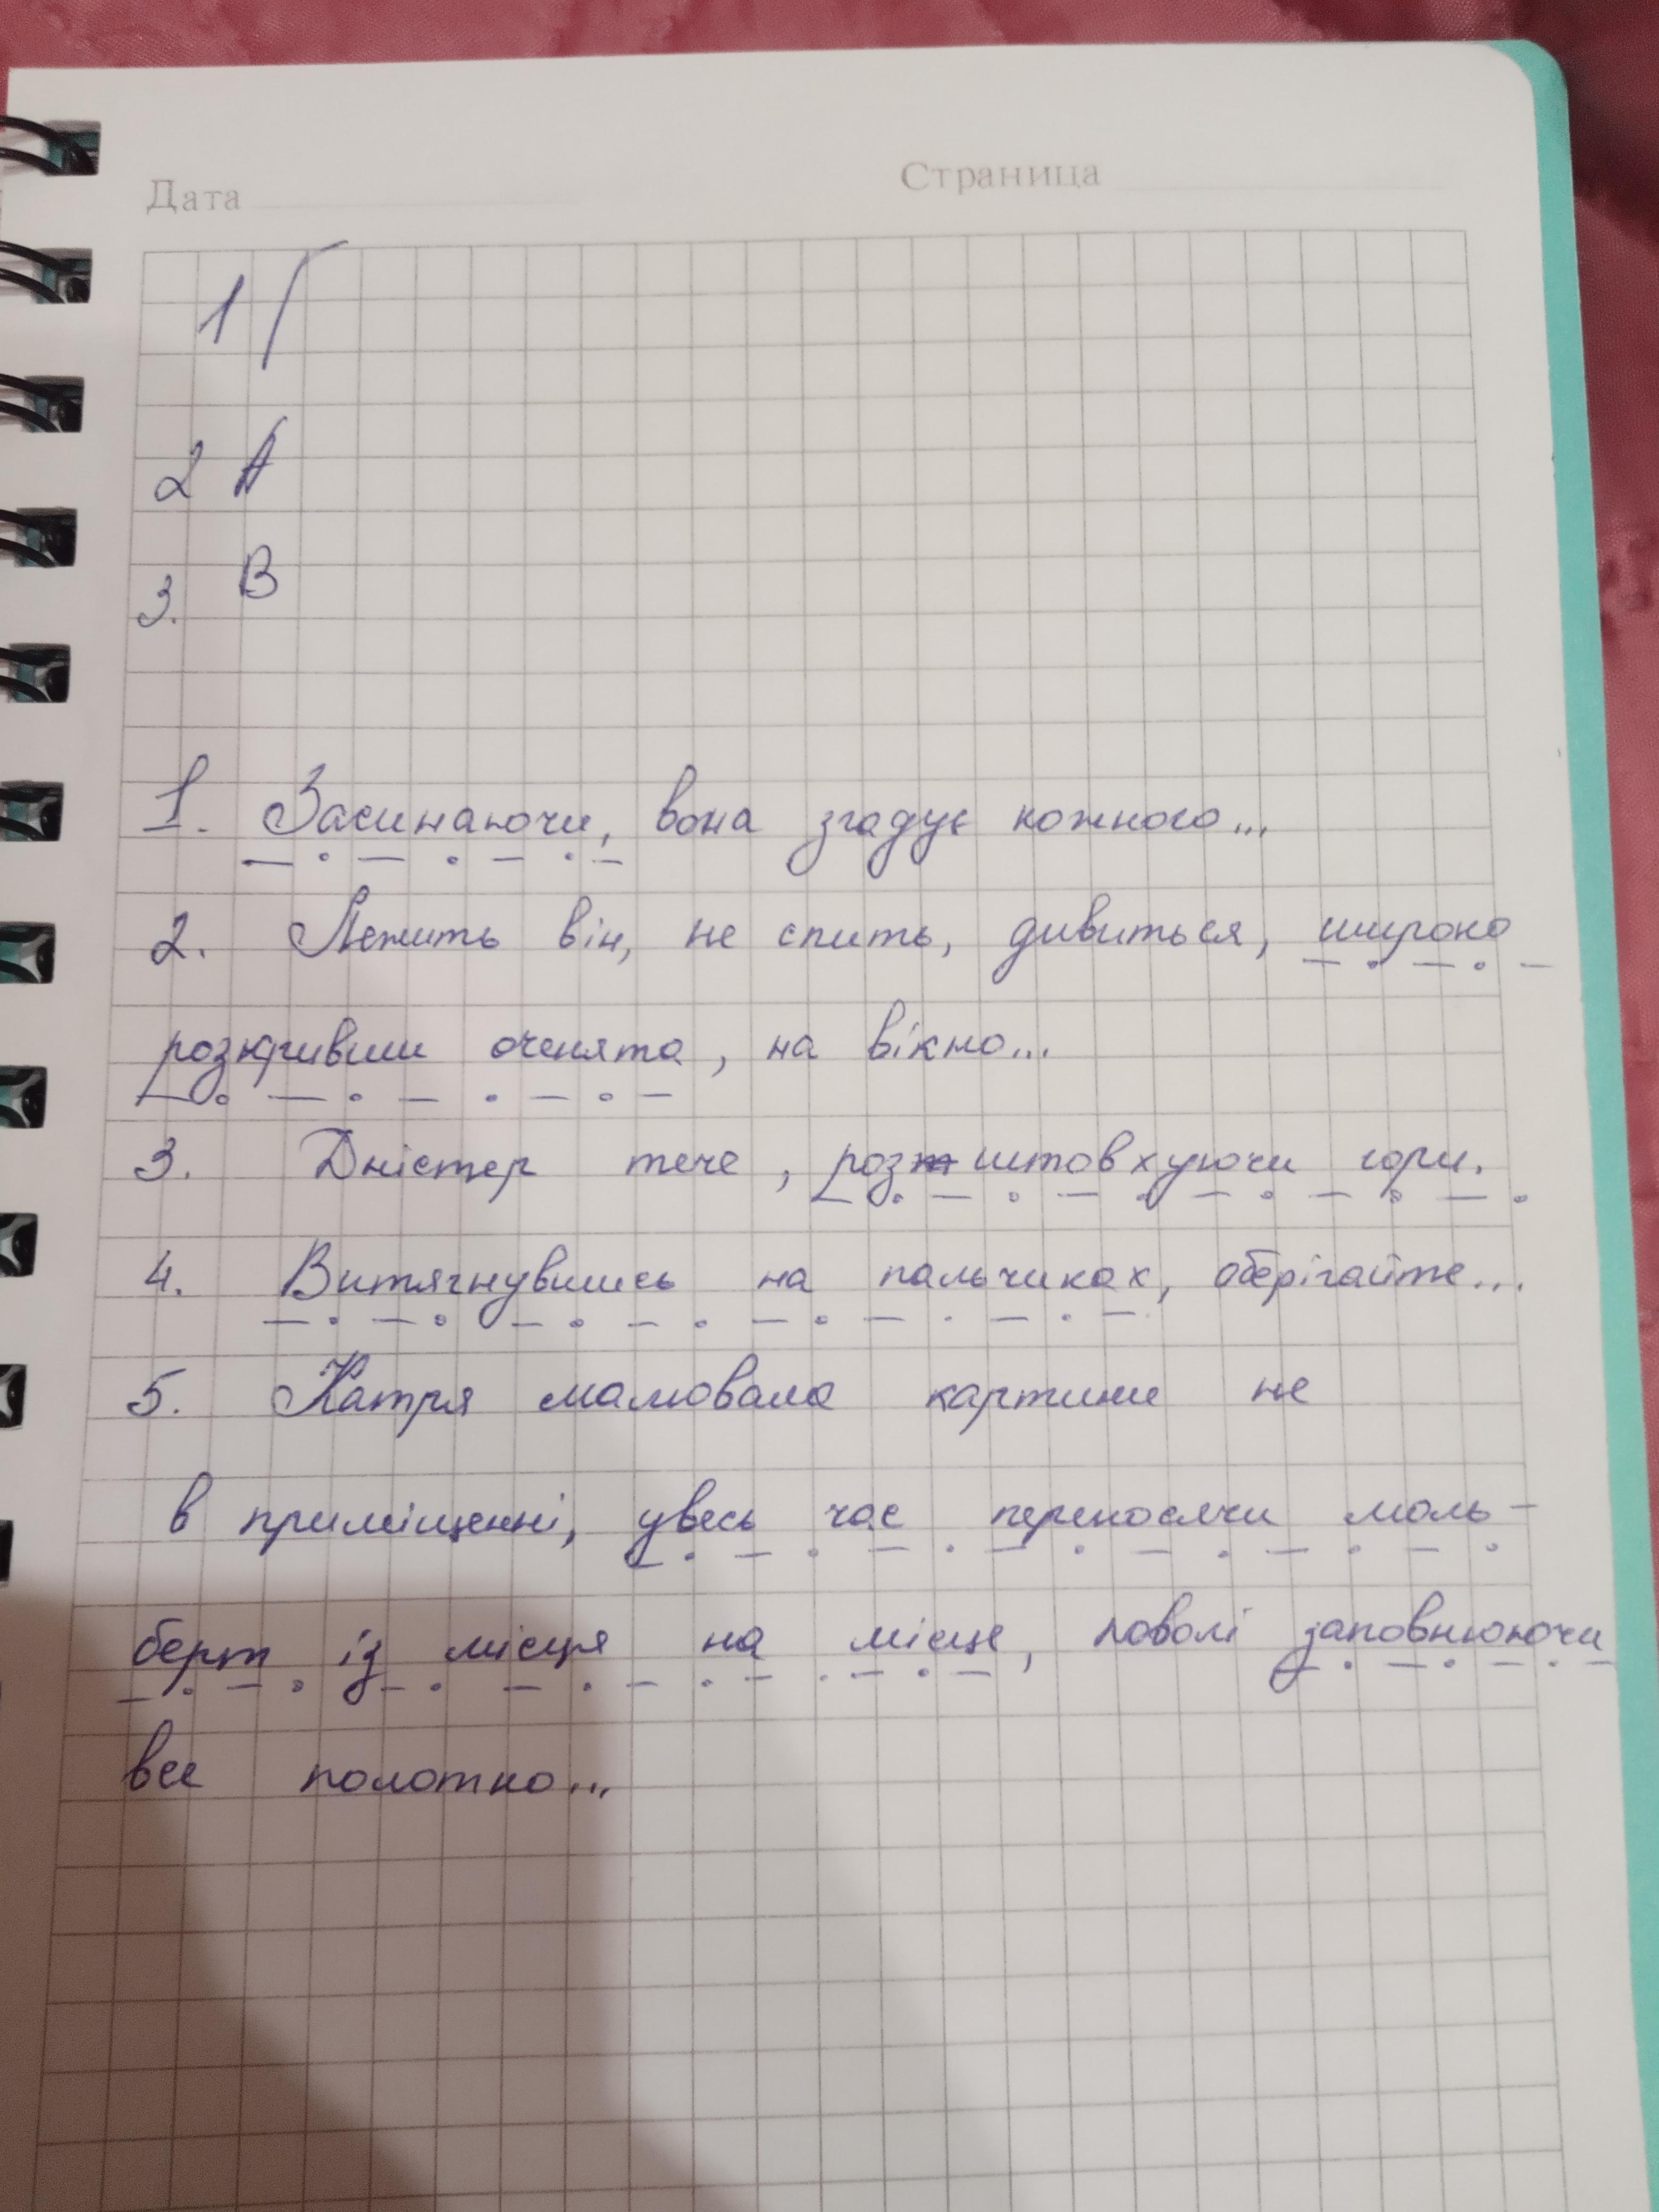 Дата Страница
1 Г
2 А
3. В
1. Засинаючи, вона згадує кожного...
2. Лежить він, не спить, дивиться, широко
розкривши оченята, на вікно...
3. Дністер тече, розштовхуючи гори.
4. Витягнувшись на пальчиках, оберігайте...
5. Катря малювала картини не
в приміщенні, увесь час переносячи моль-
берт із місця на місце, поволі заповнюючи
все полотно...